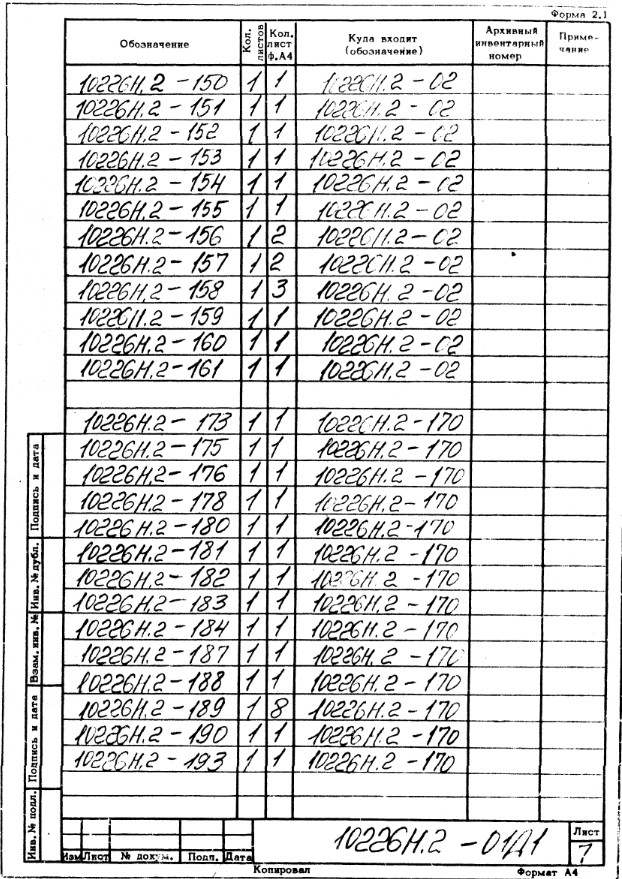 Форма 2.1
Обозначение Кол. листов Кол. лист ф.А4 Куда входит (обозначение) Архивный инвентарный номер Приме- чание
10226Н.2 - 150 1 1 10226Н.2 - 02
10226Н.2 - 151 1 1 10226Н.2 - 02
10226Н.2 - 152 1 1 10226Н.2 - 02
10226Н.2 - 153 1 1 10226Н.2 - 02
10226Н.2 - 154 1 1 10226Н.2 - 02
10226Н.2 - 155 1 1 10226Н.2 - 02
10226Н.2 - 156 1 2 10226Н.2 - 02
10226Н.2 - 157 1 2 10226Н.2 - 02
10226Н.2 - 158 1 3 10226Н.2 - 02
10226Н.2 - 159 1 1 10226Н.2 - 02
10226Н.2 - 160 1 1 10226Н.2 - 02
10226Н.2 - 161 1 1 10226Н.2 - 02
10226Н.2 - 173 1 1 10226Н.2 - 170
10226Н.2 - 175 1 1 10226Н.2 - 170
10226Н.2 - 176 1 1 10226Н.2 - 170
10226Н.2 - 178 1 1 10226Н.2 - 170
10226Н.2 - 180 1 1 10226Н.2 - 170
10226Н.2 - 181 1 1 10226Н.2 - 170
10226Н.2 - 182 1 1 10226Н.2 - 170
10226Н.2 - 183 1 1 10226Н.2 - 170
10226Н.2 - 184 1 1 10226Н.2 - 170
10226Н.2 - 187 1 1 10226Н.2 - 170
10226Н.2 - 188 1 1 10226Н.2 - 170
10226Н.2 - 189 1 8 10226Н.2 - 170
10226Н.2 - 190 1 1 10226Н.2 - 170
10226Н.2 - 193 1 1 10226Н.2 - 170
Подпись и дата
Инв. № дубл.
Взам. инв. №
Подпись и дата
Инв. № подл.
10226Н.2 - 01Д1
Лист
7
Изм Лист № докум. Подп. Дата
Копировал Формат А4